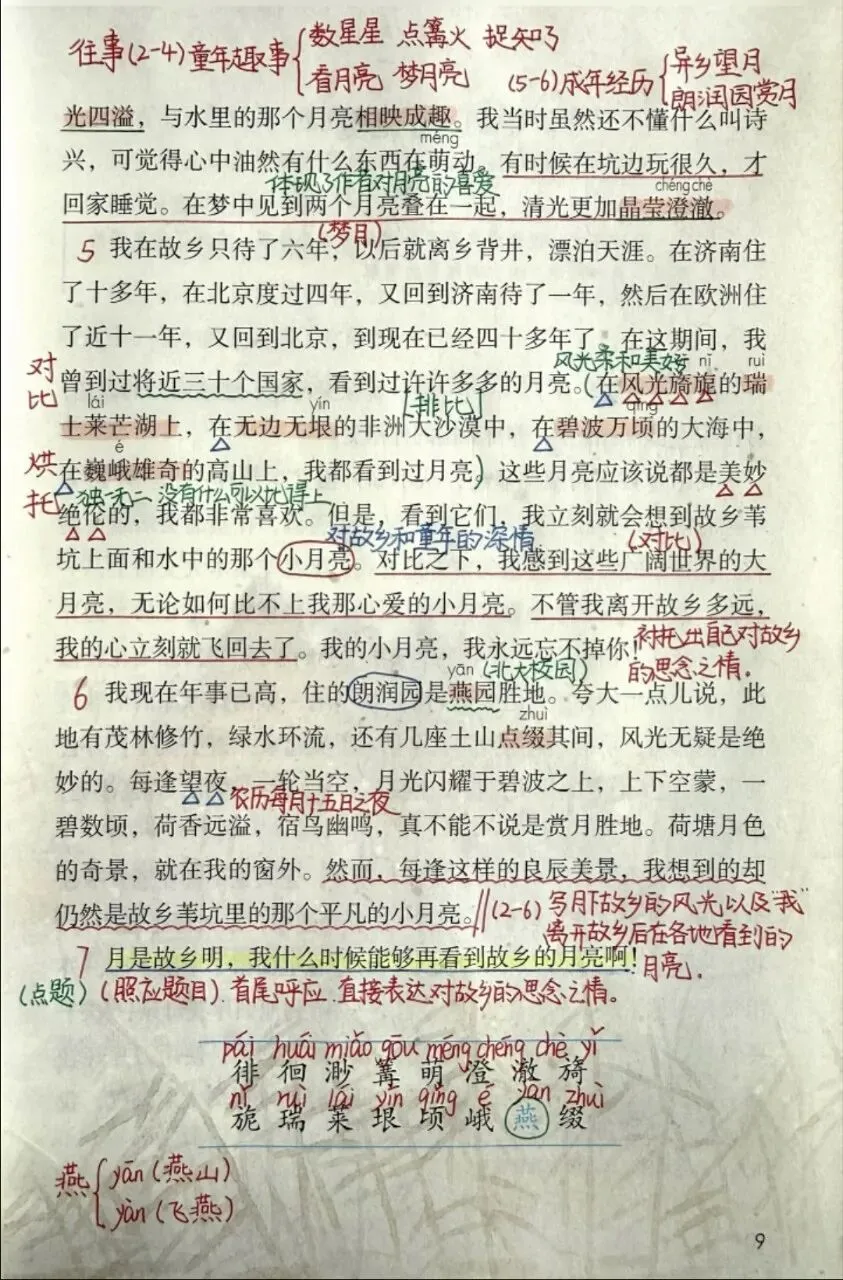 往事(2-4)童年趣事 数星星 点篝火 捉知了
看月亮 梦月亮
(5-6)成年经历 异乡望月
朗润园赏月
光四溢，与水里的那个月亮相映成趣。我当时虽然还不懂什么叫诗
méng
兴，可觉得心中油然有什么东西在萌动。有时候在坑边玩很久，才
体现了作者对月亮的喜爱
chéng chè
回家睡觉。在梦中见到两个月亮叠在一起，清光更加晶莹澄澈。
(梦月)
5 我在故乡只待了六年，以后就离乡背井，漂泊天涯。在济南住
了十多年，在北京度过四年，又回到济南待了一年，然后在欧洲住
了近十一年，又回到北京，到现在已经四十多年了。在这期间，我
对比
风光柔和美好
nǐ ruì
曾到过将近三十个国家，看到过许许多多的月亮。(在风光旖旎的瑞
lái yín [排比] qǐng
士莱芒湖上，在无边无垠的非洲大沙漠中，在碧波万顷的大海中，
é
烘托
在巍峨雄奇的高山上，我都看到过月亮)这些月亮应该说都是美妙
独一无二 没有什么可以比得上
绝伦的，我都非常喜欢。但是，看到它们，我立刻就会想到故乡苇
对故乡和童年的深情
(对比)
坑上面和水中的那个小月亮。对比之下，我感到这些广阔世界的大
月亮，无论如何比不上我那心爱的小月亮。不管我离开故乡多远，
我的心立刻就飞回去了。我的小月亮，我永远忘不掉你！
衬托出自己对故乡
的思念之情.
yān (北大校园)
6 我现在年事已高，住的朗润园是燕园胜地。夸大一点儿说，此
zhuì
地有茂林修竹，绿水环流，还有几座土山点缀其间，风光无疑是绝
妙的。每逢望夜，一轮当空，月光闪耀于碧波之上，上下空蒙，一
农历每月十五日之夜
碧数顷，荷香远溢，宿鸟幽鸣，真不能不说是赏月胜地。荷塘月色
的奇景，就在我的窗外。然而，每逢这样的良辰美景，我想到的却
仍然是故乡苇坑里的那个平凡的小月亮。
(2-6) 写月下故乡的风光以及"我"
离开故乡后在各地看到的
月亮.
7 月是故乡明，我什么时候能够再看到故乡的月亮啊！
(点题) (照应题目). 首尾呼应. 直接表达对故乡的思念之情。
pái huái miǎo gōu méng chéng chè yǐ
徘 徊 渺 篝 萌 澄 澈 旖
nǐ ruì lái yín qǐng é yān zhuì
旎 瑞 莱 垠 顷 峨 燕 缀
燕 yān (燕山)
yàn (飞燕)
9